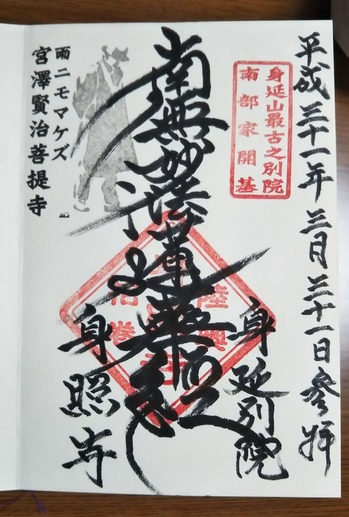 平成三十一年三月三十一日参拝
身延山最古之別院
南部家開基
身延別院
南無妙法蓮華経
身照寺
雨ニモマケズ
宮澤賢治菩提寺